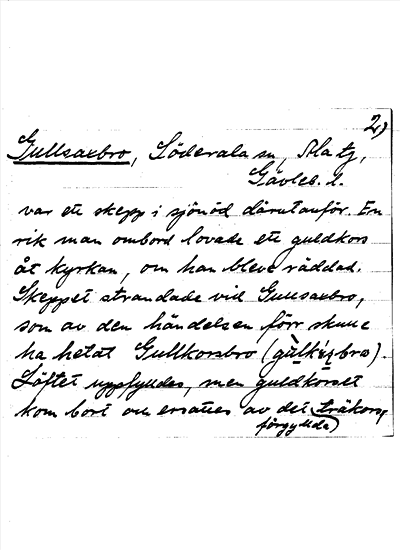 2)
Gullsaxbro, Söderala sn, Ala tg,
Gävleb. l.
var ett skepp i sjönöd därutanför. En
rik man ombord lovade ett guldkors
åt kyrkan, om han bleve räddad.
Skeppet strandade vid Gullsaxbro,
som av den händelsen förr skulle
ha hetat Gullkorsbro
Löftet uppfylldes, men guldkorset
kom bort och ersattes av det träkors,
förgyllda